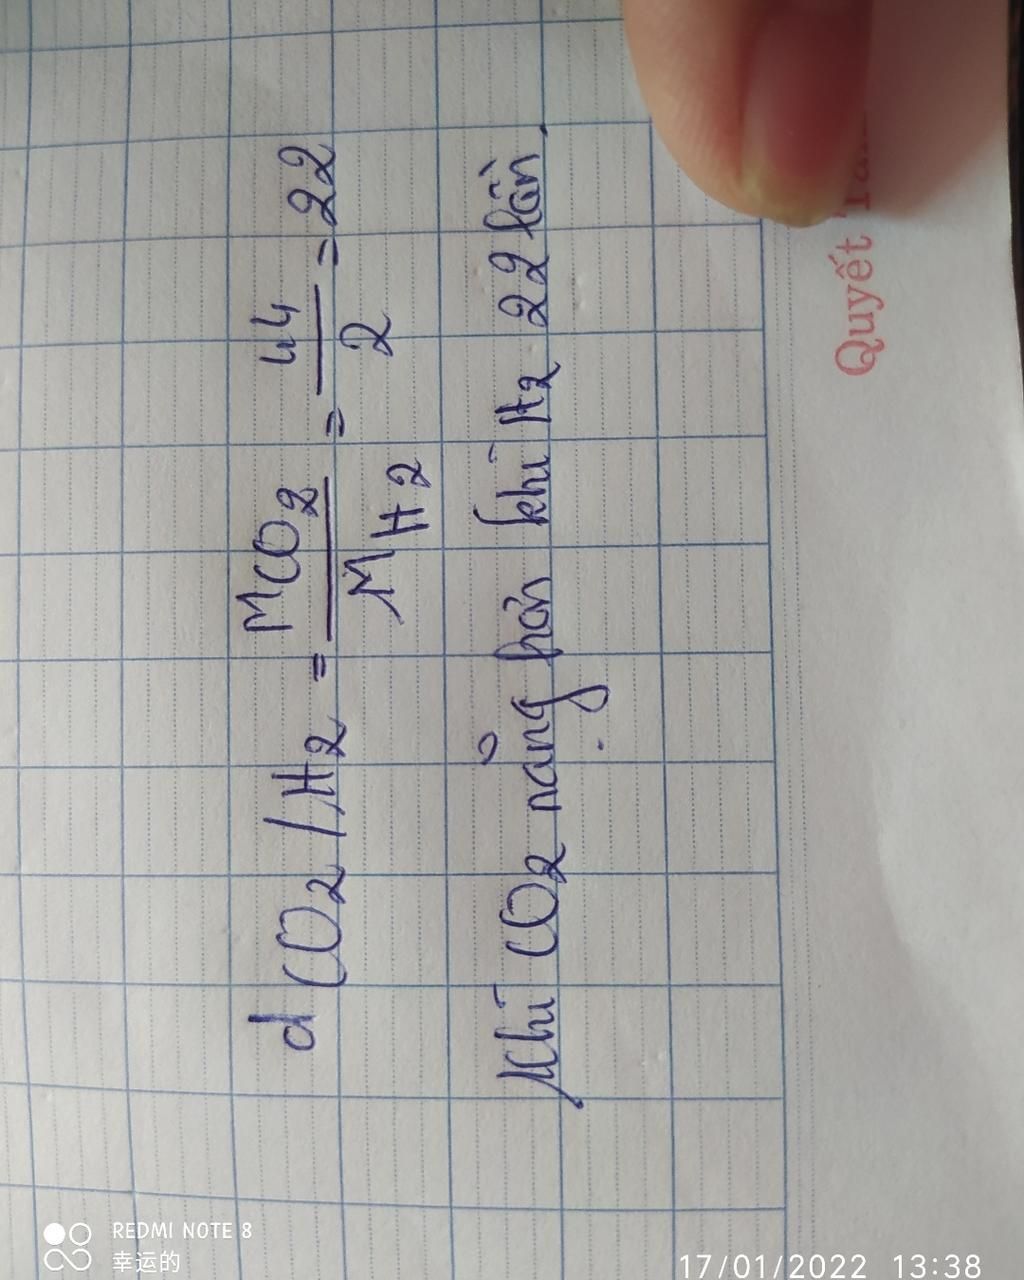 d CO₂/H₂ = MCO₂ / MH₂ = 44 / 2 = 22
Khí CO₂ nặng hơn khí H₂ 22 lần.
Quyết
REDMI NOTE 8
幸运的
17/01/2022 13:38